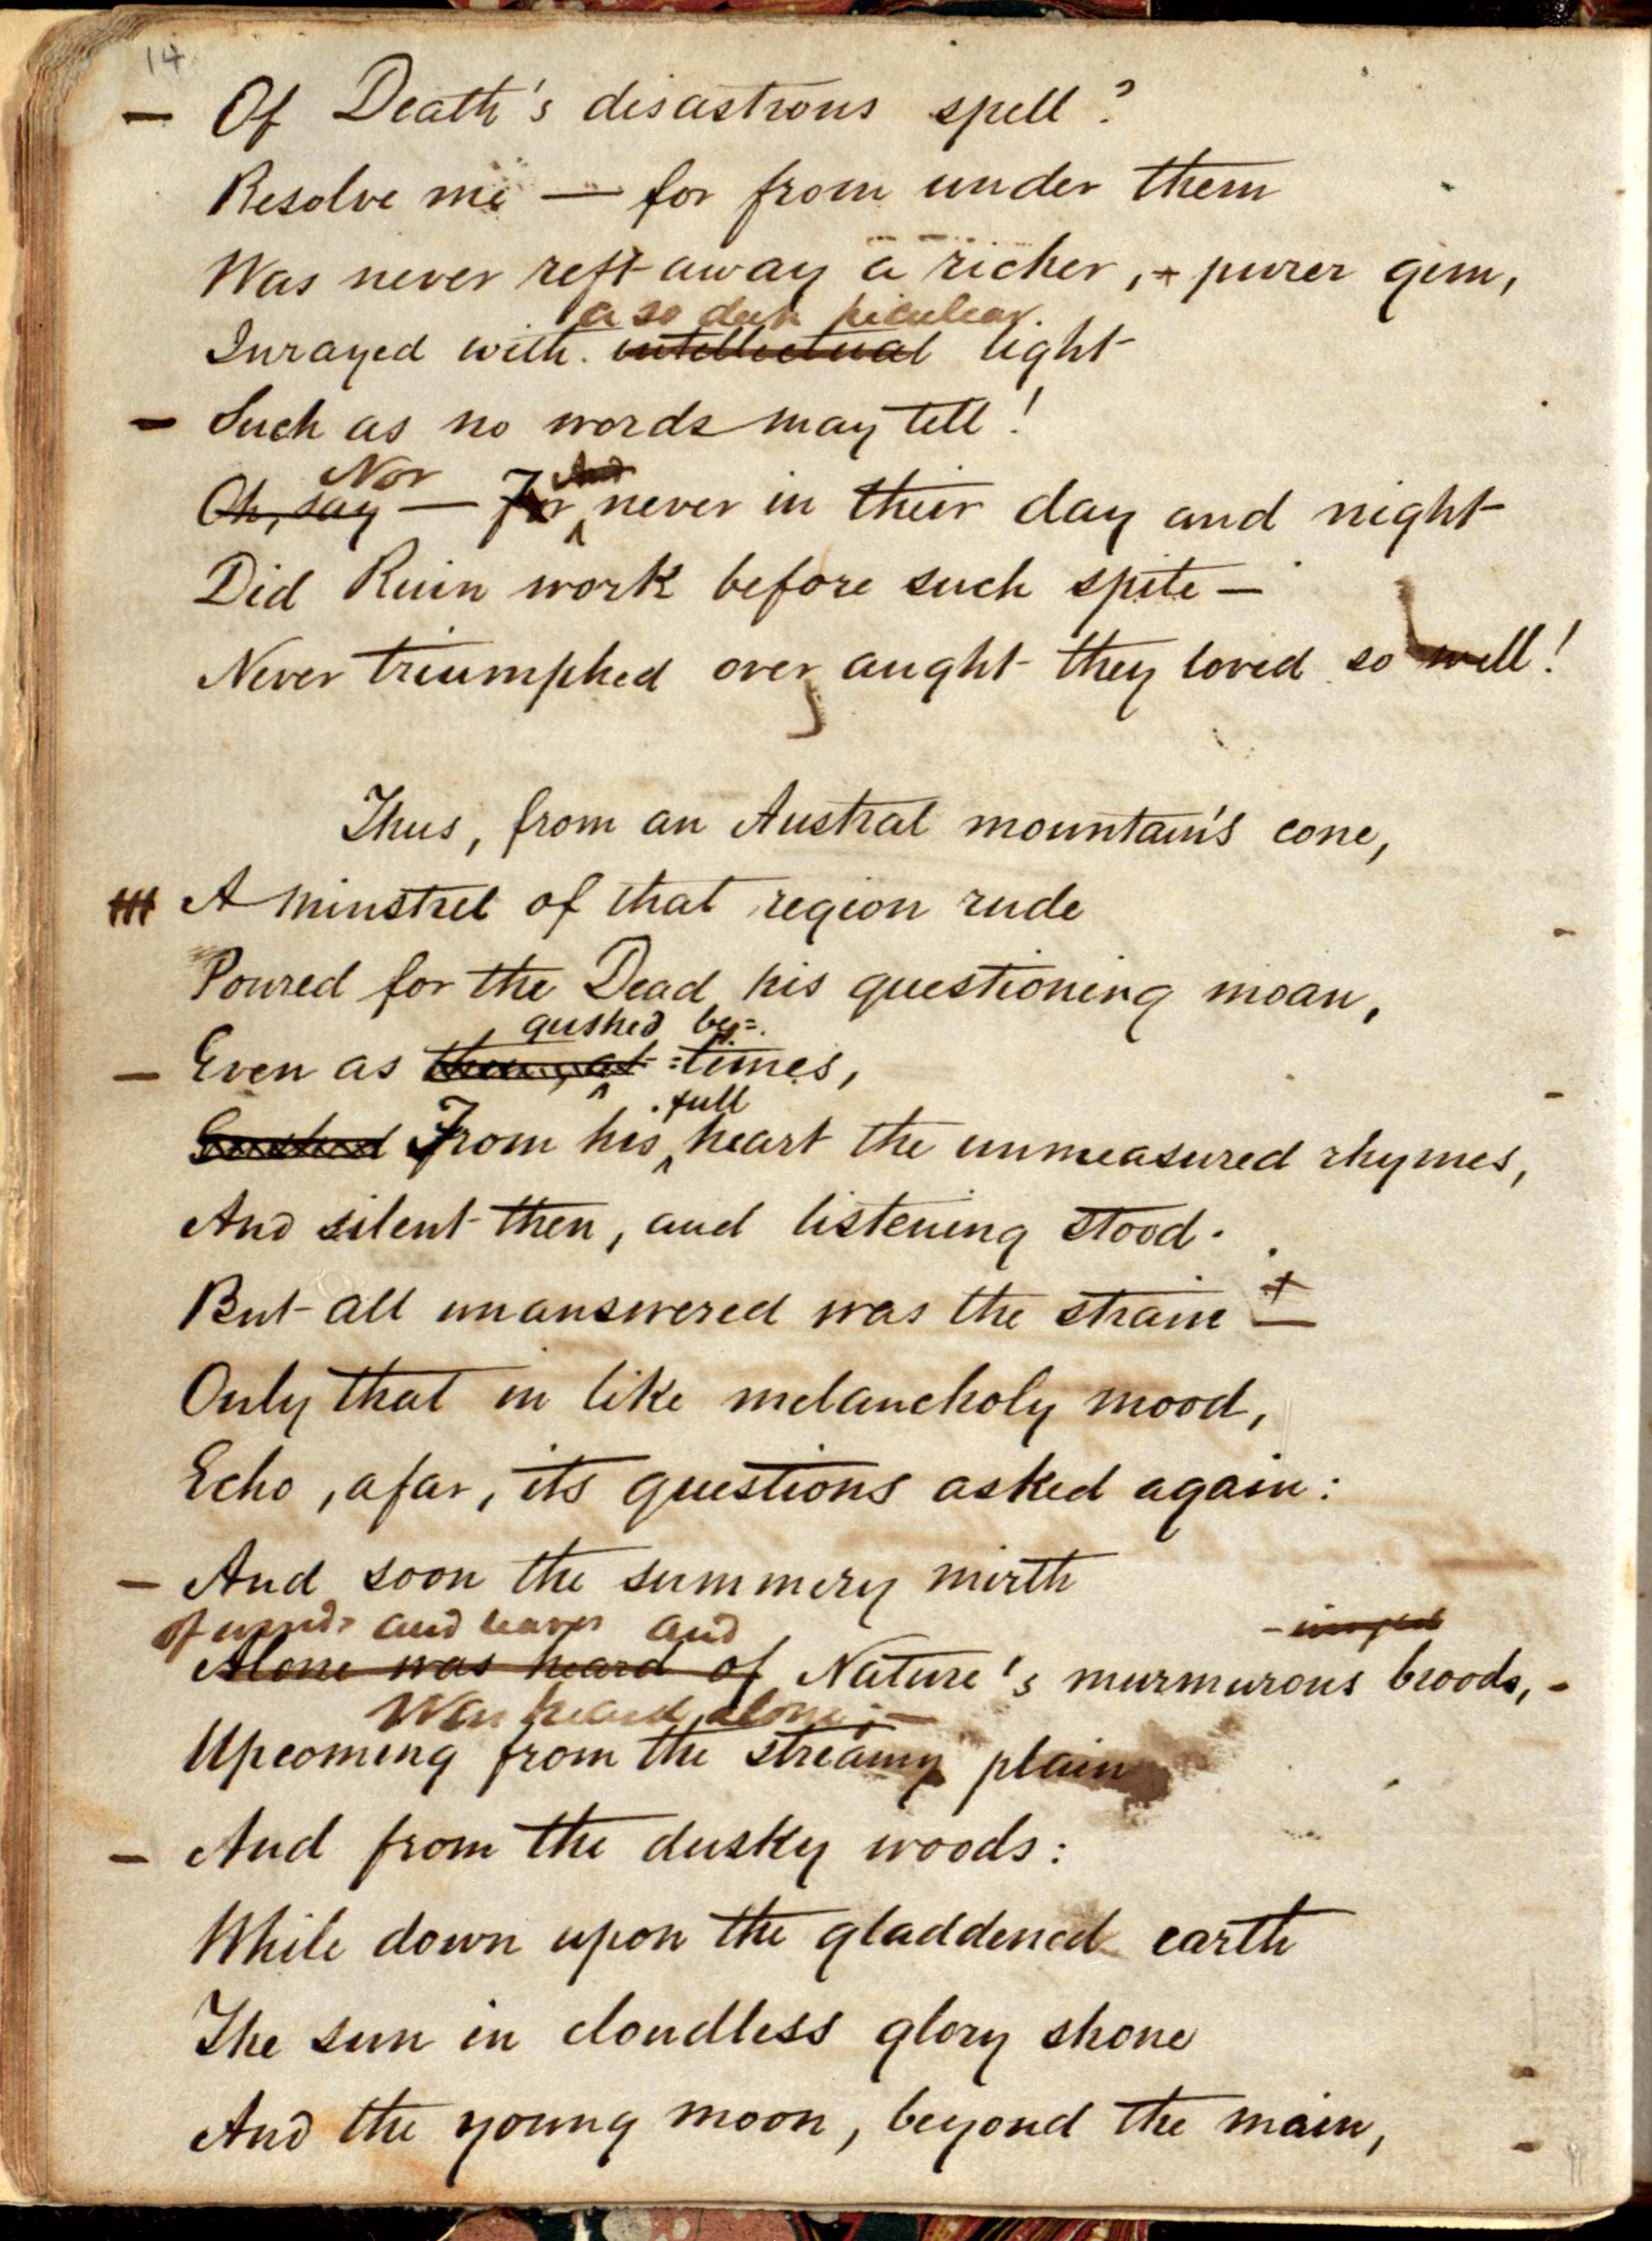 14
— Of Death's disastrous spell?
Resolve me — for from under them
Was never reft away a richer, + purer gem,
a so deep peculiar.
Inrayed with intellectual light
— Such as no words may tell!
Nor And
Oh, say — For never in their day and night
Did Ruin work before such spite —
Never triumphed over aught they loved so well!
Thus, from an Austral mountain's cone,
A minstrel of that region rude
Poured for the Dead his questioning moan,
gushed be=
— Even as then, at =times,
full
Gushed From his heart the unmeasured rhymes,
And silent then, and listening stood.
But all unanswered was the strain + —
Only that in like melancholy mood,
Echo, afar, its questions asked again:
— And soon the summery mirth
Of winds and leaves and
Alone was heard of Nature's murmurous broods, -
Was heard alone; —
Upcoming from the streamy plain
— And from the dusky woods:
While down upon the gladdened earth
The sun in cloudless glory shone
And the young moon, beyond the main,